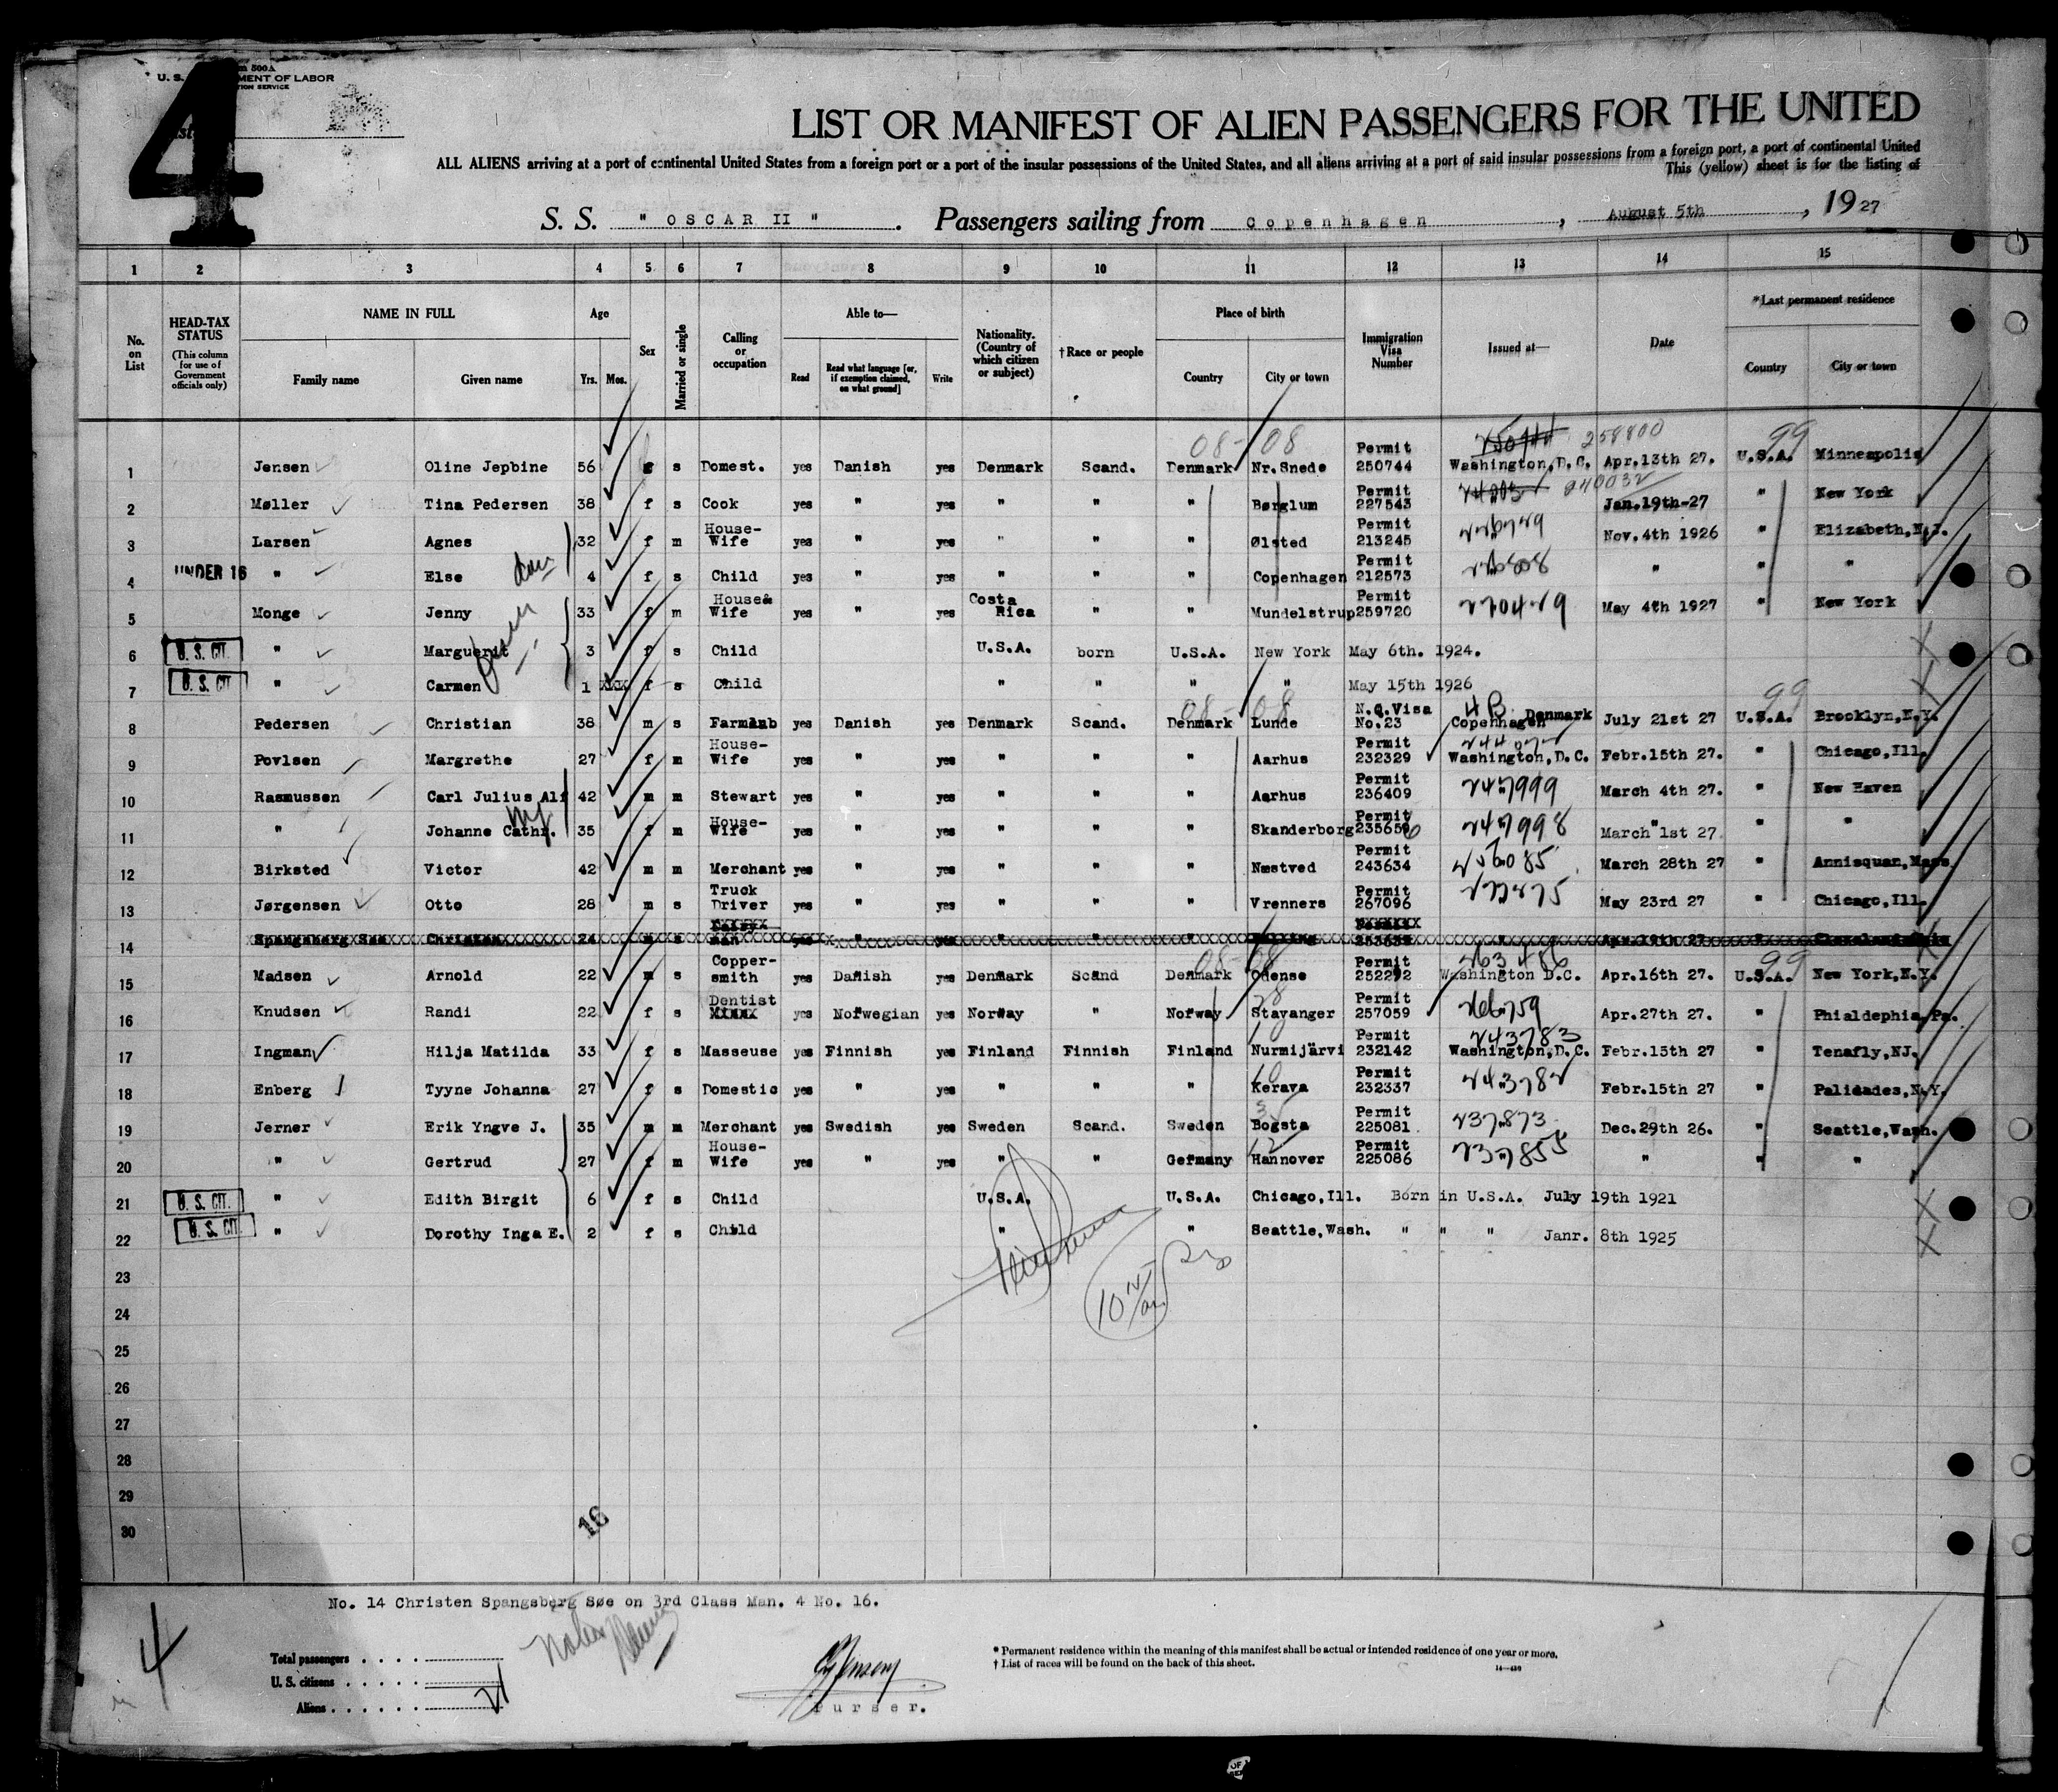 4
U. S. MENT OF LABOR
LIST OR MANIFEST OF ALIEN PASSENGERS FOR THE UNITED
ALL ALIENS arriving at a port of continental United States from a foreign port or a port of the insular possessions of the United States, and all aliens arriving at a port of said insular possessions from a foreign port, a port of continental United
This (yellow) sheet is for the listing of
S. S. " OSCAR II ". Passengers sailing from Copenhagen, August 5th, 1927
1 2 3 4 5 6 7 8 9 10 11 12 13 14 15
No. on List HEAD-TAX STATUS (This column for use of Government officials only) NAME IN FULL Family name Given name Age Yrs. Mos. Sex Married or single Calling or occupation Able to— Read Read what language [or, if exemption claimed, on what ground] Write Nationality. (Country of which citizen or subject) †Race or people Place of birth Country City or town Immigration Visa Number Issued at— Date *Last permanent residence Country City or town
08-08 258800 99
1 Jensen Oline Jepbine 56 s Domest. yes Danish yes Denmark Scand. Denmark Nr.Snede Permit 250744 Washington,D.C. Apr.13th 27. U.S.A. Minneapolis
2 Møller Tina Pedersen 38 f s Cook yes " yes " " " Børglum Permit 227543 240032 Jan.19th-27 " New York
3 Larsen Agnes 32 f m House-Wife yes " yes " " " Ølsted Permit 213245 226749 Nov.4th 1926 " Elizabeth,N.J.
4 UNDER 16 " Else 4 f s Child yes " yes " " " Copenhagen Permit 212573 226808 " " "
5 Monge Jenny 33 f m House& Wife yes " yes Costa Rica " " Mundelstrup Permit 259720 270429 May 4th 1927 " New York
6 U. S. CIT. " Marguerit 3 f s Child U.S.A. born U.S.A. New York May 6th. 1924.
7 U. S. CIT " Carmen 1 XXX f s Child " " " " May 15th 1926
08-08 4B 99
8 Pedersen Christian 38 m s Farmlab yes Danish yes Denmark Scand. Denmark Lunde N.Q.Visa No.23 Copenhagen Denmark July 21st 27 U.S.A. Brooklyn,N.Y.
9 Povlsen Margrethe 27 f m House-Wife yes " yes " " " Aarhus Permit 232329 Washington,D.C. Febr.15th 27. " Chicago,Ill.
10 Rasmussen Carl Julius Alf 42 m m Stewart yes " yes " " " Aarhus Permit 236409 247999 March 4th 27. " New Haven
11 " Johanne Cathr. 35 f m House-Wife yes " yes " " " Skanderborg Permit 235656 247998 March 1st 27 " "
12 Birksted Victor 42 m m Merchant yes " yes " " " Næstved Permit 243634 256085 March 28th 27 " Annisquan,Mass
13 Jørgensen Otto 28 m s Truck Driver yes " yes " " " Vrenners Permit 267096 277275 May 23rd 27 " Chicago,Ill.
14 Spangsberg Søe Christen 24 m s man yes " yes " " " Apr.19th 27 "
08-08 263486 99
15 Madsen Arnold 22 m s Copper-smith yes Danish yes Denmark Scand Denmark Odense Permit 252292 Washington D.C. Apr.16th 27. U.S.A. New York,N.Y.
16 Knudsen Randi 22 f s Dentist yes Norwegian yes Norway " Norway Stavanger Permit 257059 266759 Apr.27th 27. " Phialdephia,Pa.
17 Ingman Hilja Matilda 33 f s Masseuse yes Finnish yes Finland Finnish Finland Nurmijärvi Permit 232142 243783 Washington,D.C. Febr.15th 27 " Tenafly,NJ.
18 Enberg Tyyne Johanna 27 f s Domestic yes " yes " " " Kerava Permit 232337 243782 Febr.15th 27 " Palidades,N.Y.
19 Jerner Erik Yngve J. 35 m m Merchant yes Swedish yes Sweden Scand. Sweden Bogsta Permit 225081 237873 Dec.29th 26. " Seattle,Wash.
20 " Gertrud 27 f m House-Wife yes " yes " " Germany Hannover Permit 225086 237855 " " "
21 U. S. CIT. " Edith Birgit 6 f s Child U.S.A. U.S.A. Chicago,Ill. Born in U.S.A. July 19th 1921
22 U. S. CIT. " Dorothy Inga E. 2 f s Child " " Seattle,Wash. " " " Janr. 8th 1925
23
24
25
26
27
28
29
30
16
No. 14 Christen Spangsberg Søe on 3rd Class Man. 4 No. 16.
4
Total passengers . . . .
U. S. citizens . . . . .
Aliens . . . . . . 21
Purser.
* Permanent residence within the meaning of this manifest shall be actual or intended residence of one year or more.
† List of races will be found on the back of this sheet.